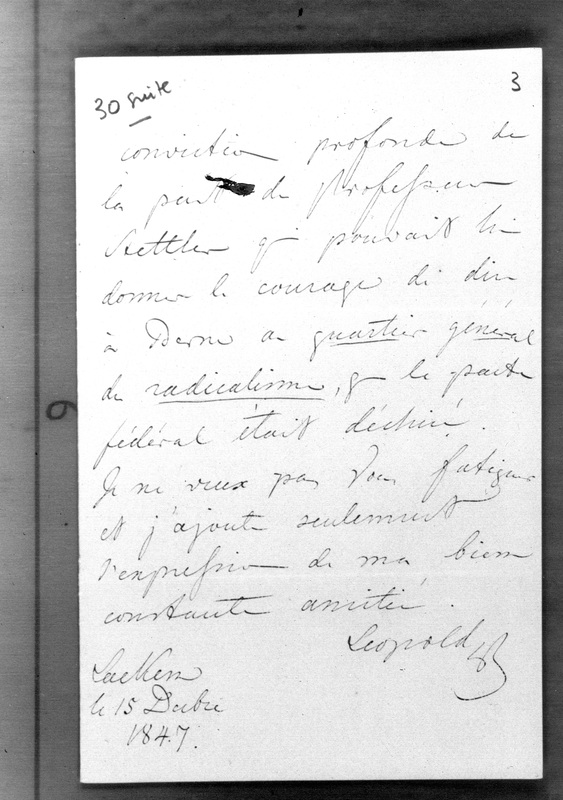 30 suite
3
conviction profonde de
la part du Professeur
Stettler qui pouvait lui
donner le courage de dire
à Berne au quartier général
du radicalisme, que le pacte
fédéral était déchiré.
Je ne veux pas Vous fatiguer
et j'ajoute seulement
l'expression de ma bien
constante amitié.
Leopold
Laeken
le 15 Decbre
1847.
6